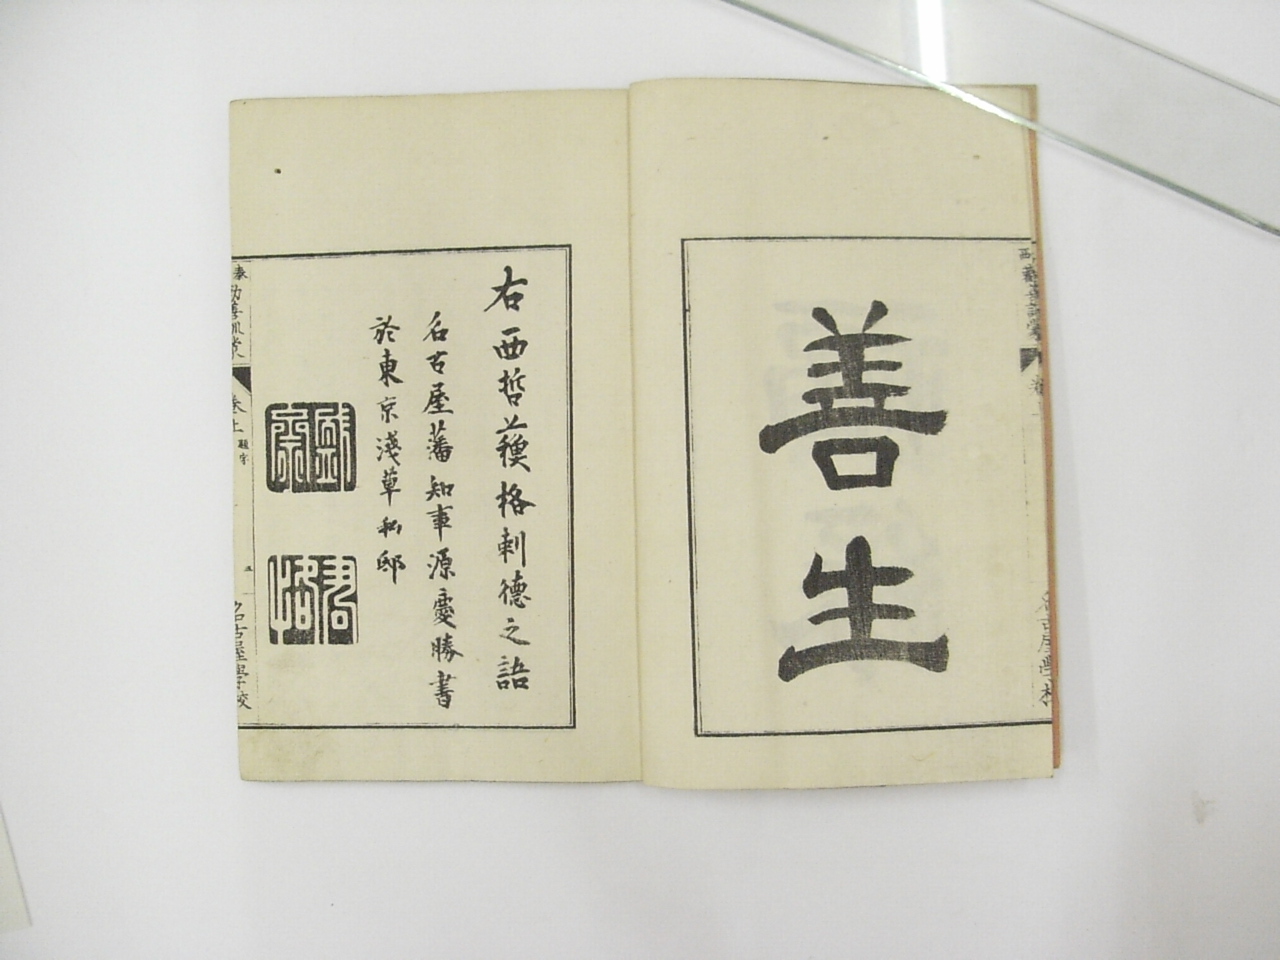 善生
右西哲蘓格剌德之語
名古屋藩知事源慶勝書
於東京淺草私邸
泰西勸善訓蒙
卷上
題字
五
名古屋學校